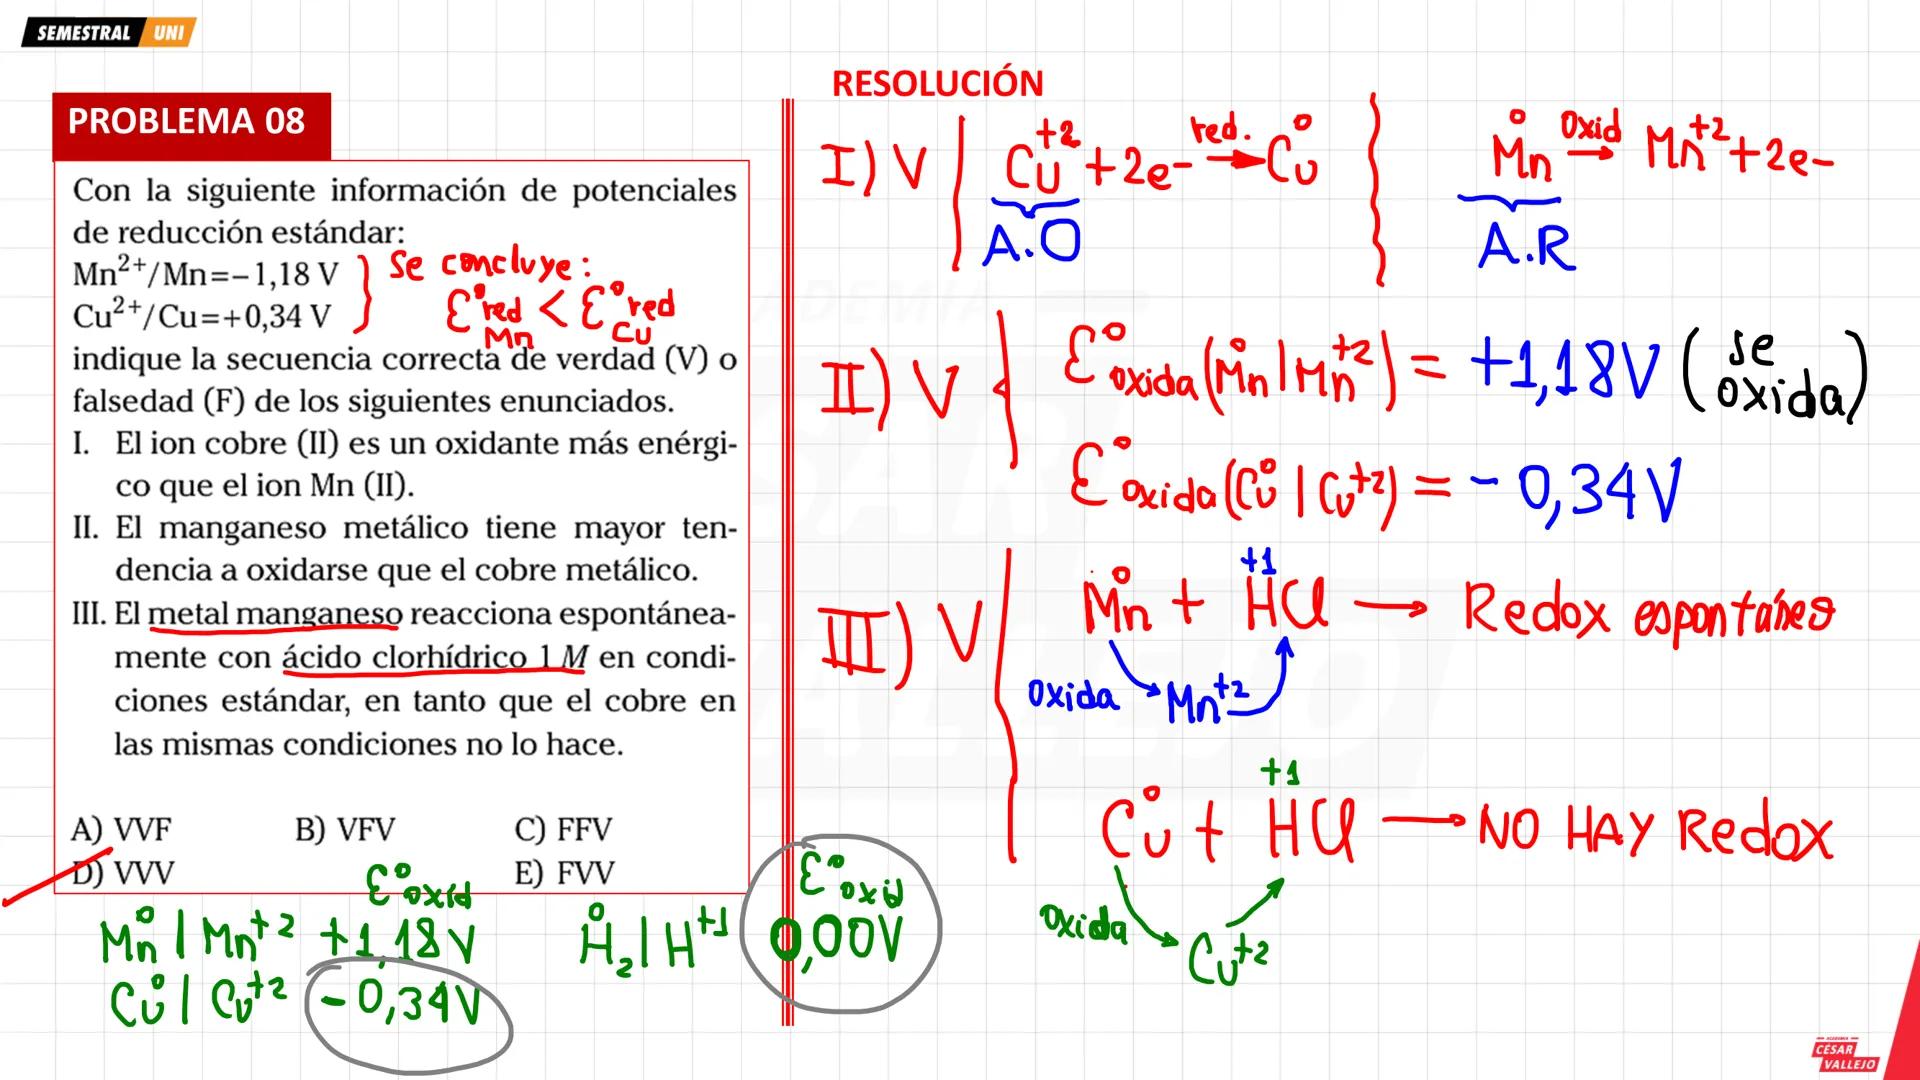 SEMESTRAL UNI
PROBLEMA 08
Con la siguiente información de potenciales
de reducción estándar:
Mn²⁺/Mn=−1,18 V
Cu²⁺/Cu=+0,34 V
Se concluye:
Ɛ°red Mn < Ɛ°red Cu
indique la secuencia correcta de verdad (V) o
falsedad (F) de los siguientes enunciados.
I. El ion cobre (II) es un oxidante más enérgi-
co que el ion Mn (II).
II. El manganeso metálico tiene mayor ten-
dencia a oxidarse que el cobre metálico.
III. El metal manganeso reacciona espontánea-
mente con ácido clorhídrico 1 M en condi-
ciones estándar, en tanto que el cobre en
las mismas condiciones no lo hace.
A) VVF B) VFV C) FFV
D) VVV E) FVV
Ɛ°oxid
Mn° | Mn⁺² +1,18V
Cu° | Cu⁺² −0,34V
H°₂ | H⁺¹
Ɛ°oxid
0,00V
RESOLUCIÓN
I) V
Cu⁺² + 2e- red. → Cu°
A.O
Mn° oxid → Mn⁺² + 2e-
A.R
II) V
Ɛ°oxida (Mn° | Mn⁺²) = +1,18V (se oxida)
Ɛ°oxida (Cu° | Cu⁺²) = - 0,34V
III) V
+1
Mn° + HCl → Redox espontáneo
oxida Mn⁺²
+1
Cu° + HCl → NO HAY Redox
oxida Cu⁺²
ACADEMIA
CÉSAR
VALLEJO